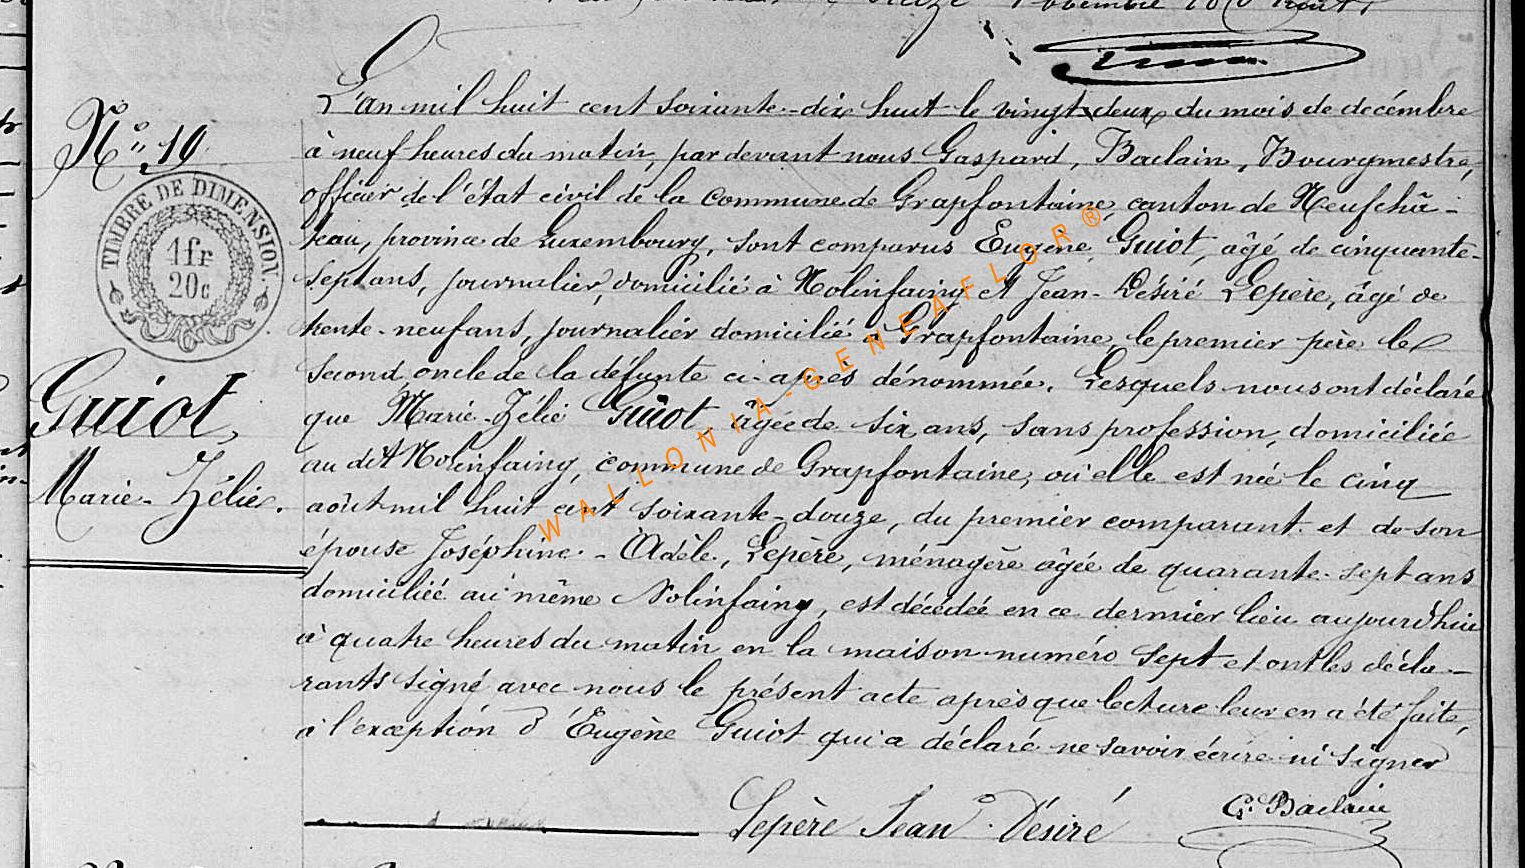 Novembre
L'an mil huit cent soixante-dix huit le vingt-deux du mois de décembre
N° 19
à neuf heures du matin, par devant nous Gaspard, Baclain, Bourgmestre,
officier de l'état civil de la commune de Grapfontaine, canton de Neufchâ-
TIMBRE DE DIMENSION.
1 fr
20c
teau, province de Luxembourg, sont comparus Eugène, Guiot, âgé de cinquante-
sept ans, journalier, domicilié à Nolinfaing et Jean-Désiré Lepère, âgé de
trente-neuf ans, journalier domicilié à Grapfontaine, le premier père le
second oncle de la défunte ci-après dénommée. Lesquels nous ont déclaré
Guiot,
Marie-Zélie.
que Marie-Zélie Guiot, âgée de six ans, sans profession, domiciliée
au dit Nolinfaing, commune de Grapfontaine, où elle est née le cinq
août mil huit cent soixante-douze, du premier comparant et de son
épouse Joséphine-Adèle, Lepère, ménagère âgée de quarante-sept ans
domiciliée au même Nolinfaing, est décédée en ce dernier lieu aujourd'hui
à quatre heures du matin en la maison numéro sept et ont les décla-
rants signé avec nous le présent acte après que lecture leur en a été faite,
à l'exception d'Eugène Guiot qui a déclaré ne savoir écrire ni signer
Lepère Jean Désiré
G. Baclain
WALLONIA-GENEAFLOR®